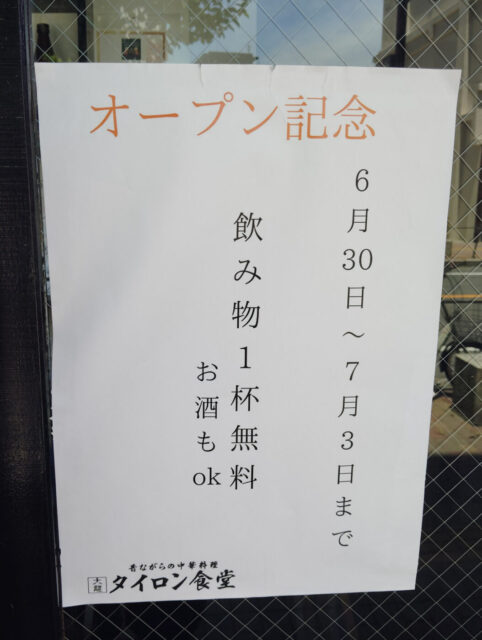 オープン記念
6月30日～7月3日まで
飲み物1杯無料
お酒もok
昔ながらの中華料理
土龍
タイロン食堂